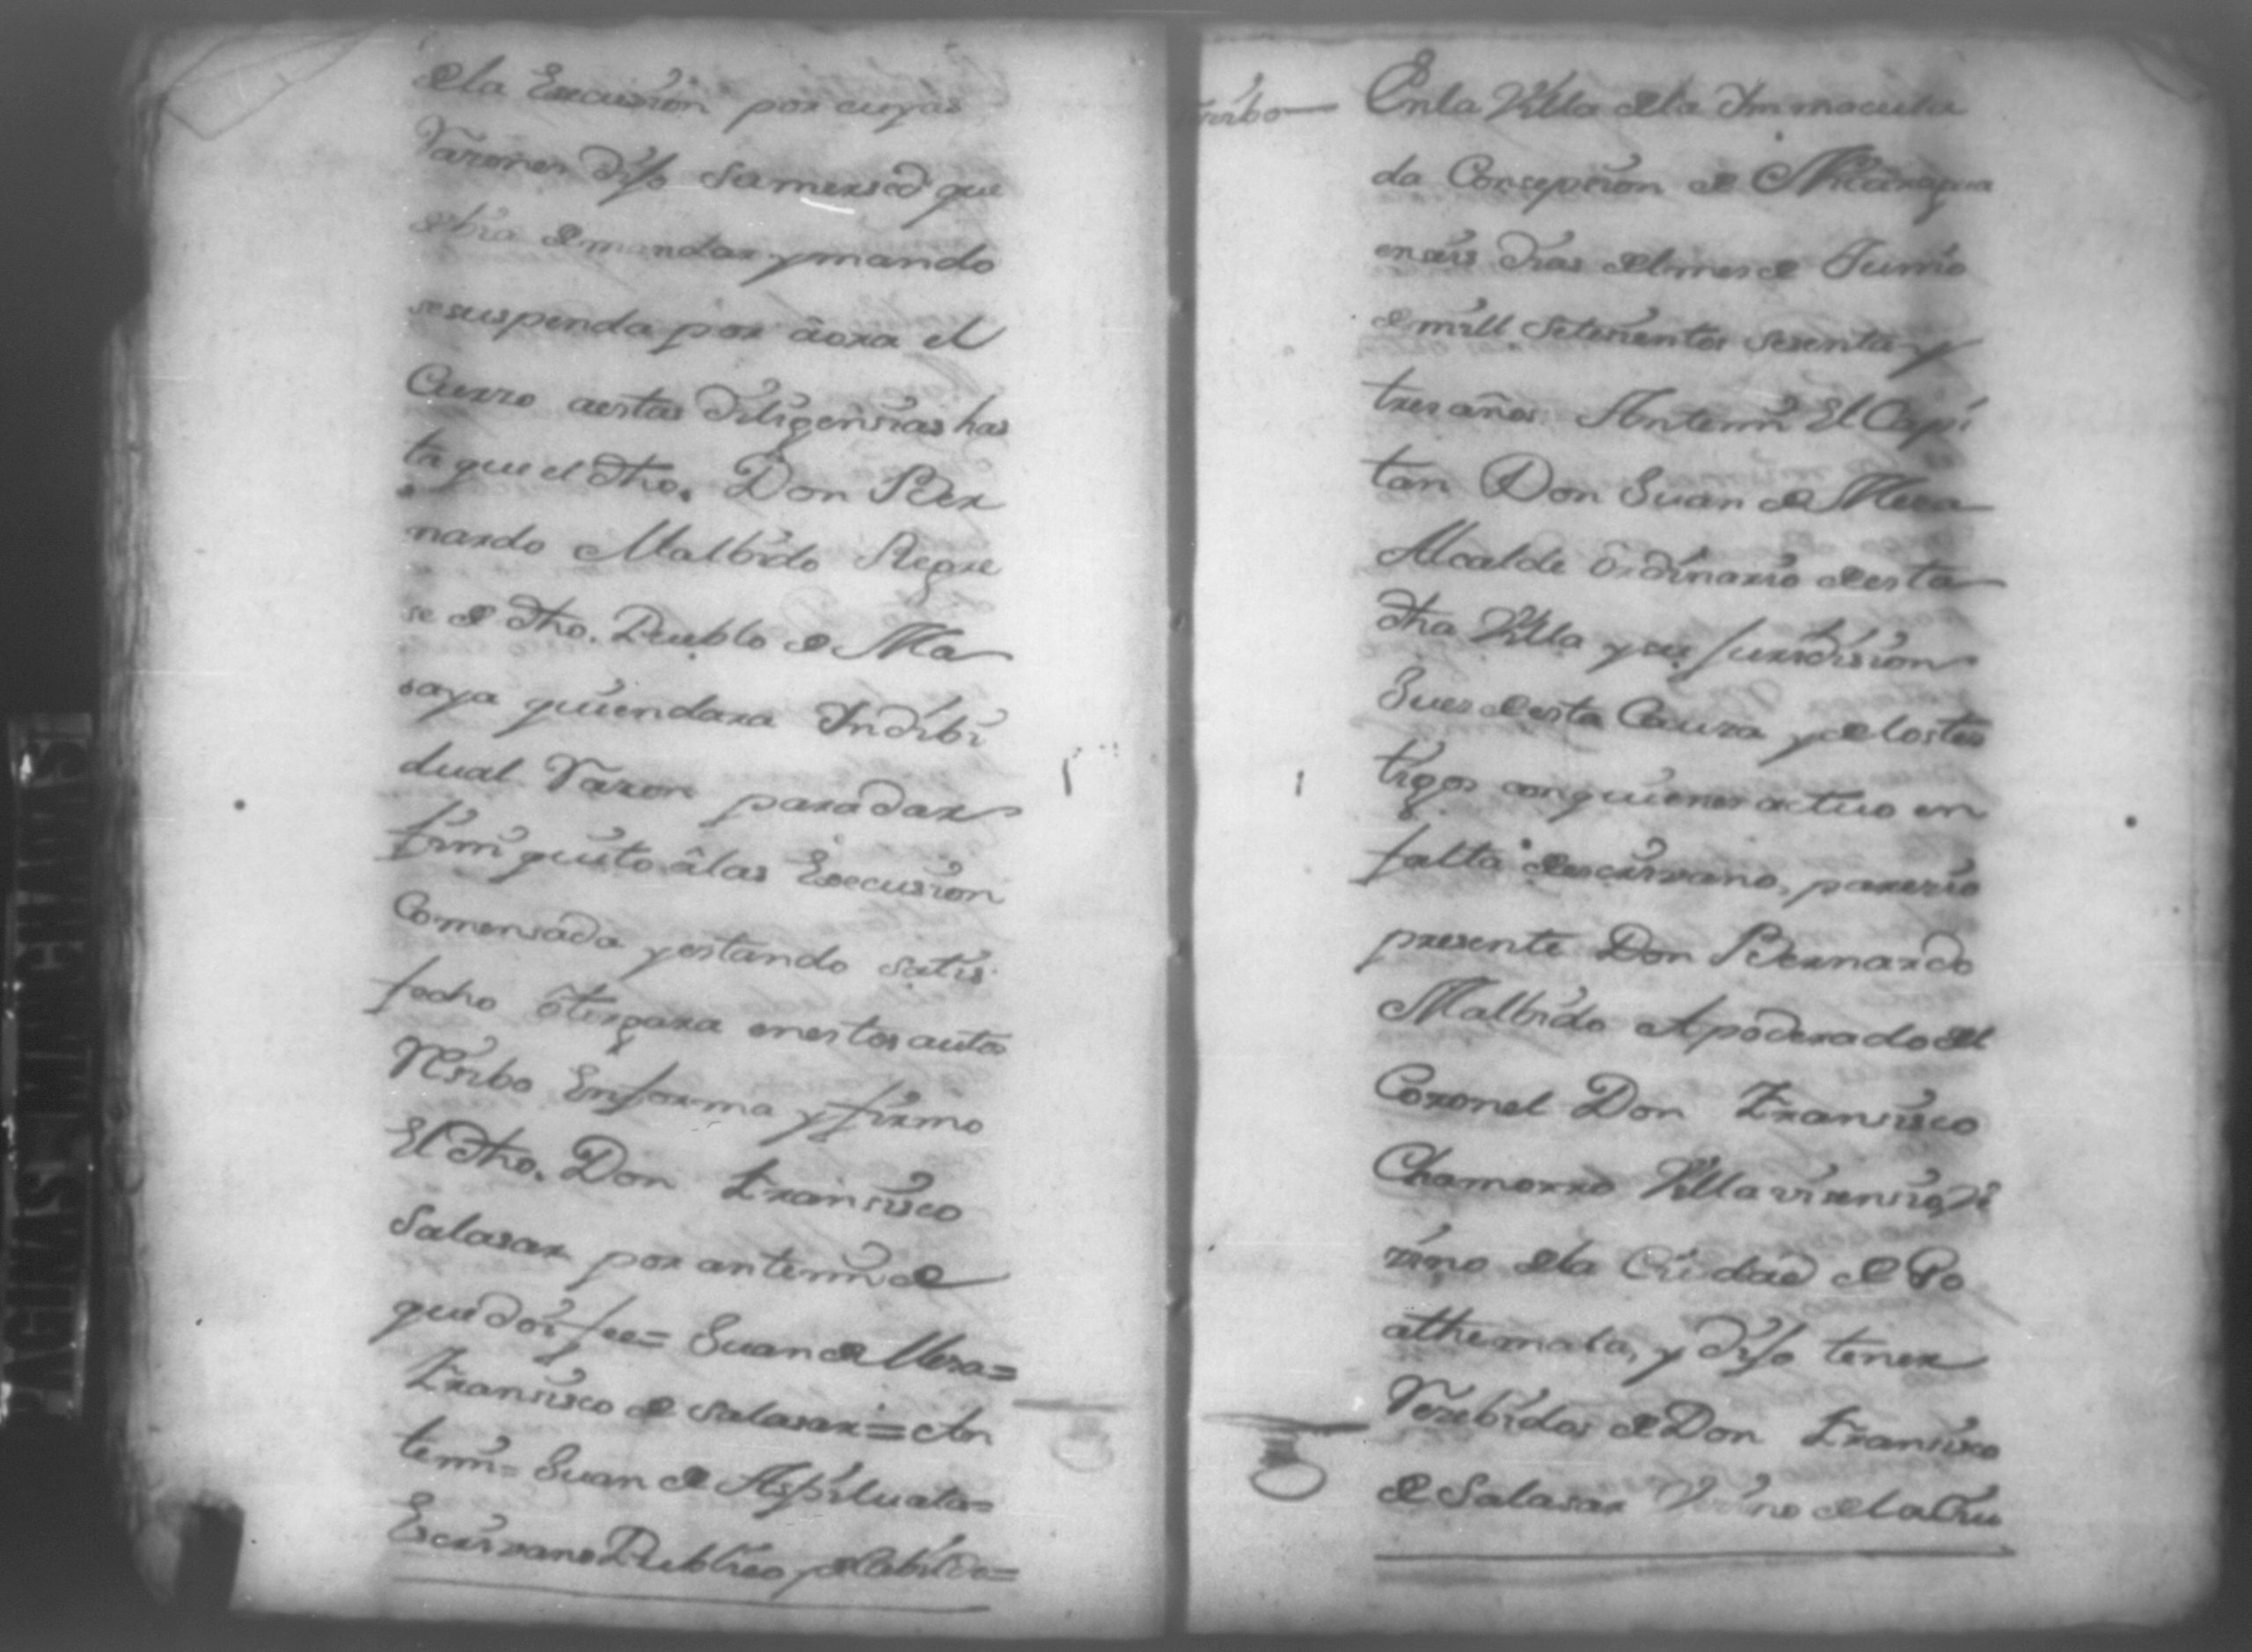 dela Execusion por cuyas
rasones dijo Sumersed que
debia demandar y mando
sesuspenda por aora el
Curso aestas diligensias has
ta que el dho. Don Ber
nardo Malbido Regre
se de dho. Pueblo de Ma
saya quiendara Indibi
dual rason para dar
finiquito â las Execusion
Comensada y estando satis
fecho ôtorgara en estos autos
resibo Enforma y firmo
El dho. Don Fransisco
Salasar por antemi de
que doi fee= Juan de Mesa=
Fransisco de Salasar= An
temi= Juan de Aspilueta=
Escrivano Publico y de Cabildo=
Enla Villa dela Immacula
da Consepsion de Nicaragua
en seis dias del mes de Junio
de mill setesientos sesenta y
tres años. Antemi El Capi
tan Don Juan de Mesa
Alcalde ôrdinario desta
dha Villa y su Jurisdision
Jues desta Causa y delos tes
tigos con quienes actuo en
falta de escrivano, paresio
presente Don Bernardo
Malbido Apoderado del
Coronel Don Fransisco
Chamorro Villavisensio, Ve
sino dela Ciudad de Go
athemala, y dijo tener
resebidos de Don Fransisco
de Salasar Vesino dela Ciu